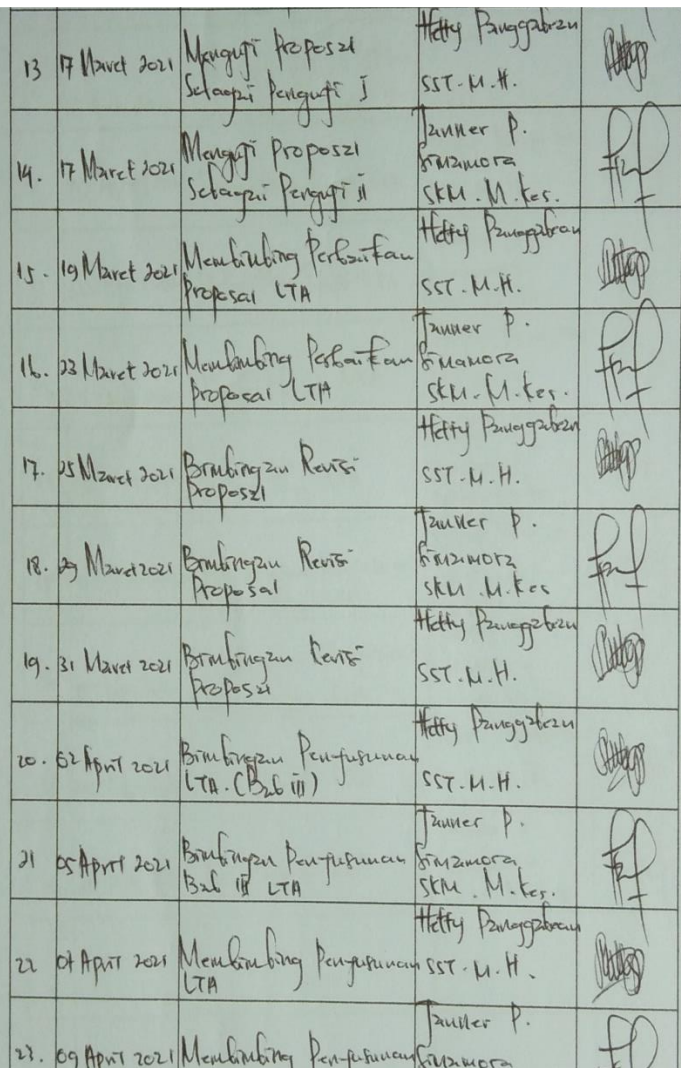 13 17 Maret 2021 Menguji Proposal Sebagai Penguji I Hetty Panggabean SST.M.H.
14. 17 Maret 2021 Menguji Proposal Sebagai Penguji II Janner P. Simamora SKM.M.Kes.
15. 19 Maret 2021 Membimbing Perbaikan Proposal LTA Hetty Panggabean SST.M.H.
16. 23 Maret 2021 Membimbing Perbaikan Proposal LTA Janner P. Simamora SKM.M.Kes.
17. 25 Maret 2021 Bimbingan Revisi Proposal Hetty Panggabean SST.M.H.
18. 29 Maret 2021 Bimbingan Revisi Proposal Janner P. Simamora SKM.M.Kes
19. 31 Maret 2021 Bimbingan Revisi Proposal Hetty Panggabean SST.M.H.
20. 02 April 2021 Bimbingan Penyusunan LTA. (Bab III) Hetty Panggabean SST.M.H.
21 05 April 2021 Bimbingan Penyusunan Bab III LTA Janner P. Simamora SKM.M.Kes.
22 April 2021 Membimbing Penyusunan LTA Hetty Panggabean SST.M.H.
23. 09 April 2021 Membimbing Penyusunan Janner P. Simamora